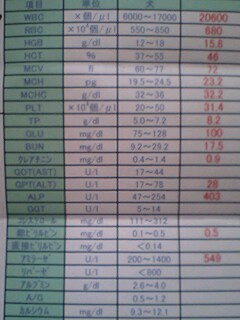 WBC ×個/μl 6000~17000 20600
RBC ×10⁴個/μl 550~850 680
HGB g/dl 12~18 15.8
HCT % 37~55 46
MCV fl 60~77 72
MCH pg 19.5~24.5 23.2
MCHC g/dl 32~36 32.2
PLT ×10⁴個/μl 20~50 31.4
TP g/dl 5.0~7.2 8.2
GLU mg/dl 75~128 100
BUN mg/dl 9.2~29.2 17.5
クレアチニン mg/dl 0.4~1.4 0.9
GOT(AST) U/l 17~44
GPT(ALT) U/l 17~78 28
ALP U/l 47~254 403
GGT U/l 5~14
コレステロール mg/dl 111~312
総ビリルビン mg/dl 0.1~0.5 0.5
直接ビリルビン mg/dl <0.14
アミラーゼ U/l 200~1400 549
リパーゼ U/l <800
アルブミン g/dl 2.6~4.0
A/G 0.5~1.2
カルシウム mg/dl 9.3~12.1